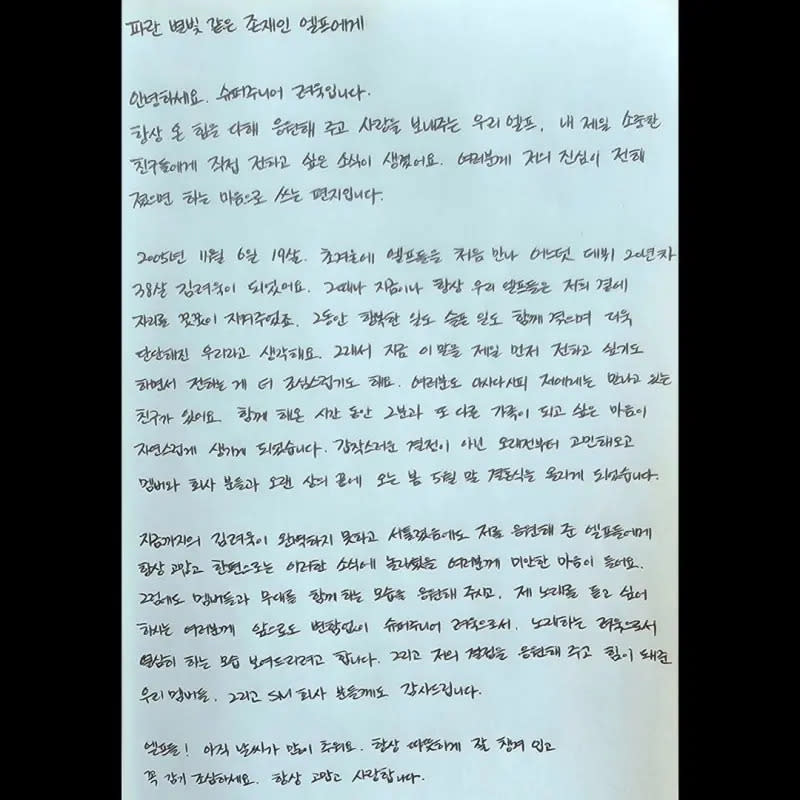 파란 별빛 같은 존재인 엘프에게
안녕하세요. 슈퍼주니어 려욱입니다.
항상 온 힘을 다해 응원해 주고 사랑을 보내주는 우리 엘프. 내 제일 소중한
친구들에게 직접 전하고 싶은 소식이 생겼어요. 여러분께 저의 진심이 전해
졌으면 하는 마음으로 쓰는 편지입니다.
2005년 11월 6일 19살. 초겨울에 엘프들을 처음 만나 어느덧 데뷔 20년차
38살 김려욱이 되었어요. 그때나 지금이나 항상 우리 엘프들은 저의 곁에
자리를 꿋꿋이 지켜주었죠. 그동안 행복한 일도 슬픈 일도 함께 겪으며 더욱
단단해진 우리라고 생각해요. 그래서 지금 이 말을 제일 먼저 전하고 싶기도
하면서 전하는 게 더 조심스럽기도 해요. 여러분도 아시다시피 저에게는 만나고 있는
친구가 있어요. 함께 해온 시간 동안 그분과 또 다른 가족이 되고 싶은 마음이
자연스럽게 생기게 되었습니다. 갑작스러운 결정이 아닌 오래전부터 고민해오고
멤버와 회사 분들과 오랜 상의 끝에 오는 봄 5월 말 결혼식을 올리게 되었습니다.
지금까지의 김려욱이 완벽하지 못하고 서툴렀음에도 저를 응원해 준 엘프들에게
항상 고맙고 한편으로는 이러한 소식에 놀라셨을 여러분께 미안한 마음이 들어요.
그럼에도 멤버들과 무대를 함께 하는 모습을 응원해 주시고, 제 노래를 듣고 싶어
하시는 여러분께 앞으로도 변함없이 슈퍼주니어 려욱으로서, 노래하는 려욱으로서
열심히 하는 모습 보여드리려고 합니다. 그리고 저의 결정을 응원해 주고 힘이 돼준
우리 멤버들, 그리고 SM 회사 분들께도 감사드립니다.
엘프들! 아직 날씨가 많이 추워요. 항상 따뜻하게 잘 챙겨 입고
꼭 감기 조심하세요. 항상 고맙고 사랑합니다.